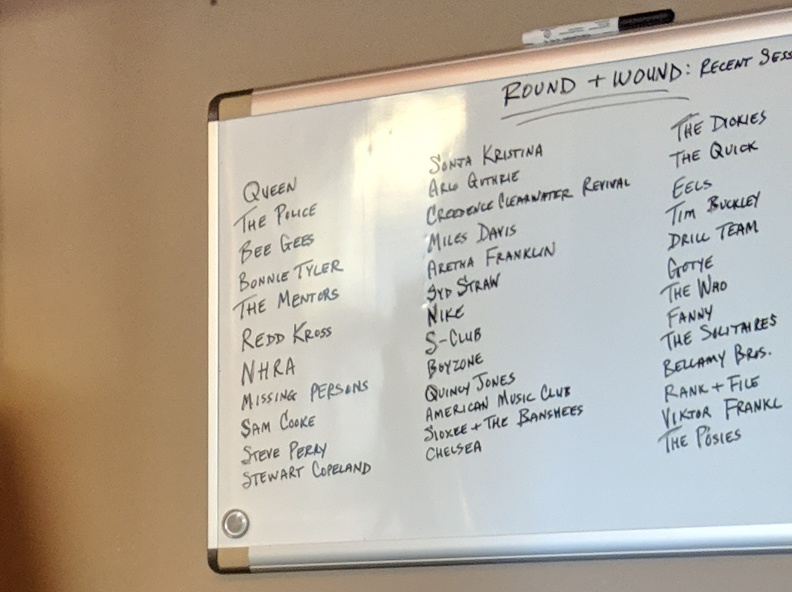 ROUND + WOUND: RECENT SESS
QUEEN
THE POLICE
BEE GEES
BONNIE TYLER
THE MENTORS
REDD KROSS
NHRA
MISSING PERSONS
SAM COOKE
STEVE PERRY
STEWART COPELAND
SONJA KRISTINA
ARLO GUTHRIE
CREEDENCE CLEARWATER REVIVAL
MILES DAVIS
ARETHA FRANKLIN
SYD STRAW
NIKE
S-CLUB
BOYZONE
QUINCY JONES
AMERICAN MUSIC CLUB
SIOXEE + THE BANSHEES
CHELSEA
THE DICKIES
THE QUICK
EELS
TIM BUCKLEY
DRILL TEAM
GOTYE
THE WHO
FANNY
THE SOLITAIRES
BELLAMY BROS.
RANK + FILE
VIKTOR FRANKL
THE POSIES